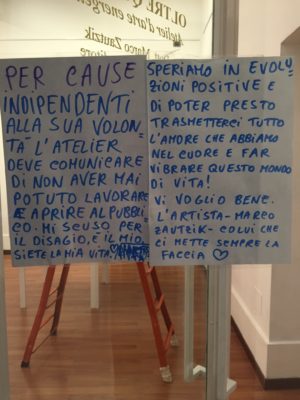 OLTRE
Atelier d'arte energe
Marco Zautzik
PER CAUSE
INDIPENDENTI
ALLA SUA VOLON=
TA' L'ATELIER
DEVE COMUNICARE
DI NON AVER MAI
POTUTO LAVORARE
E APRIRE AL PUBBLI
CO. MI SCUSO PER
IL DISAGIO, E IL MIO
SIETE LA MIA VITA!
SPERIAMO IN EVOLU
ZIONI POSITIVE E
DI POTER PRESTO
TRASMETTERCI TUTTO
L'AMORE CHE ABBIAMO
NEL CUORE E FAR
VIBRARE QUESTO MONDO
DI VITA!
VI VOGLIO BENE.
L'ARTISTA - MARCO
ZAUTZIK - COLUI CHE
CI METTE SEMPRE LA
FACCIA ♡